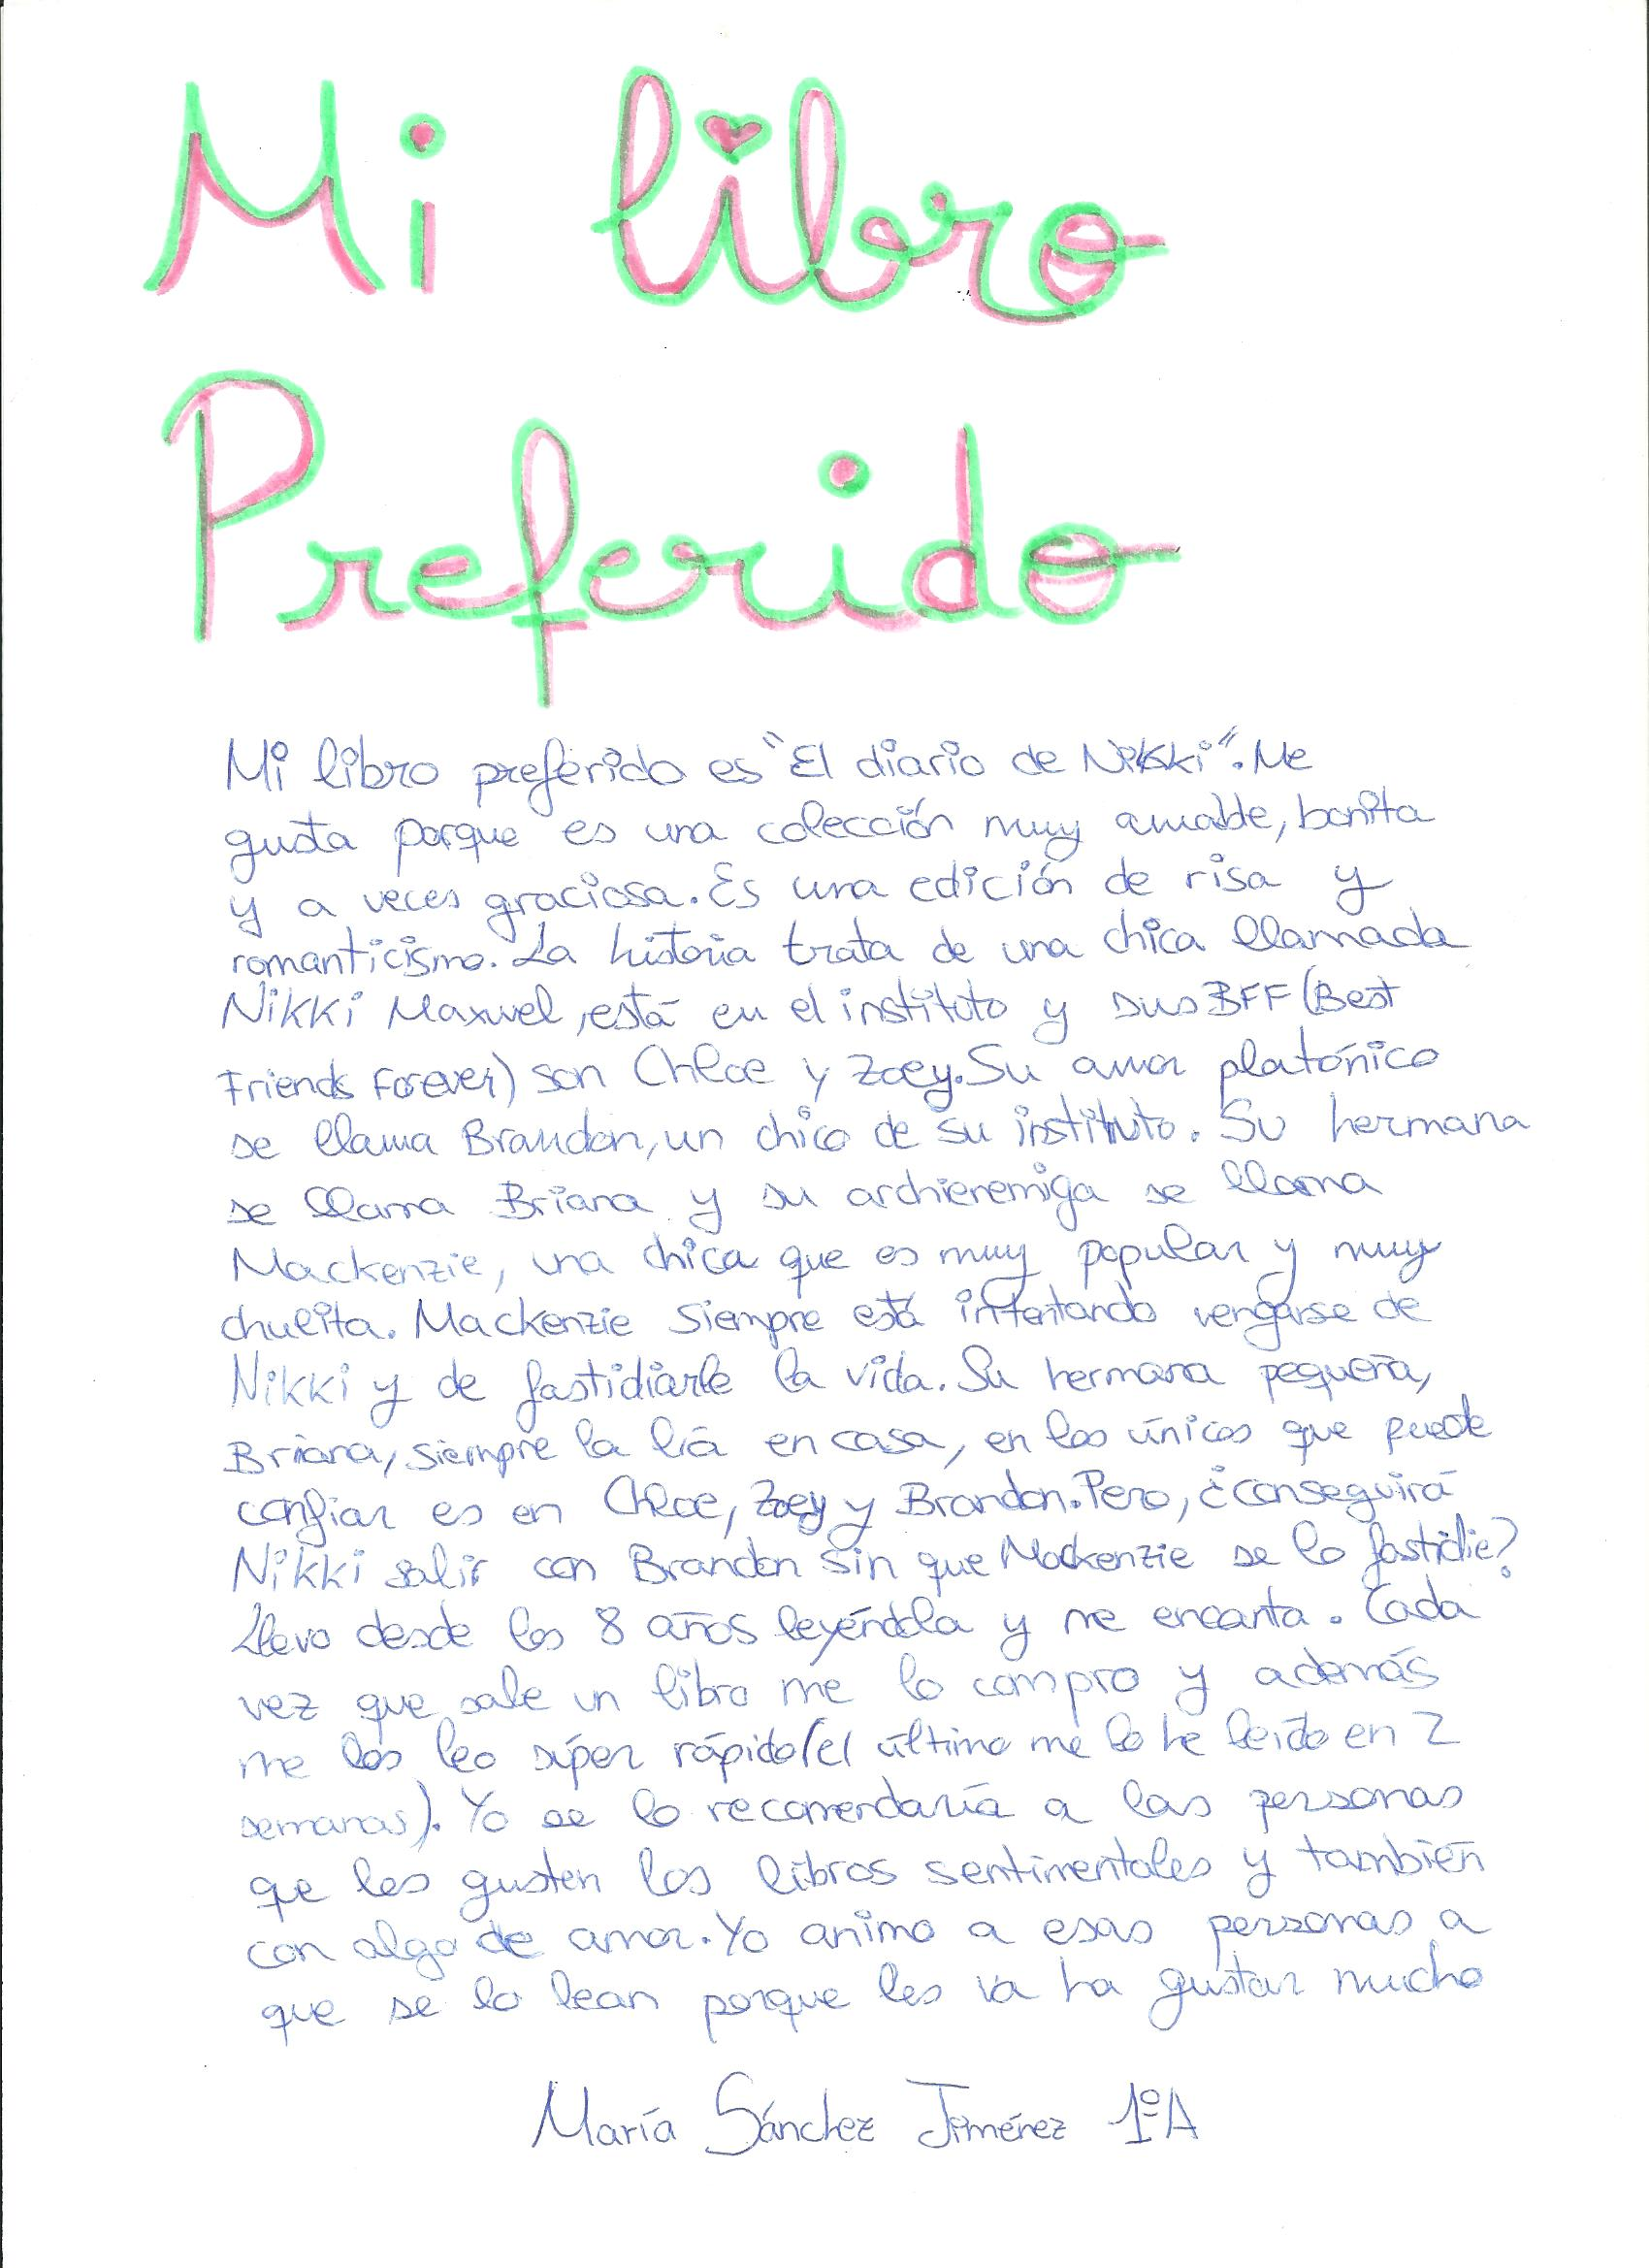 Mi libro
Preferido
Mi libro preferido es "El diario de Nikki". Me
gusta porque es una colección muy amable, bonita
y a veces graciosa. Es una edición de risa y
romanticismo. La historia trata de una chica llamada
Nikki Maxwel, está en el instituto y sus BFF (Best
Friends Forever) son Chloe y Zoey. Su amor platónico
se llama Brandon, un chico de su instituto. Su hermana
se llama Briana y su archienemiga se llama
Mackenzie, una chica que es muy popular y muy
chulita. Mackenzie siempre está intentando vengarse de
Nikki y de fastidiarle la vida. Su hermana pequeña,
Briana, siempre la lía en casa, en los únicos que puede
confiar es en Chloe, Zoey y Brandon. Pero, ¿conseguirá
Nikki salir con Brandon sin que Mackenzie se lo fastidie?
Llevo desde los 8 años leyéndola y me encanta. Cada
vez que sale un libro me lo compro y además
me los leo súper rápido (el último me lo he leído en 2
semanas). Yo se lo recomendaría a las personas
que les gusten los libros sentimentales y también
con algo de amor. Yo animo a esas personas a
que se lo lean porque les va ha gustar mucho
María Sánchez Jiménez 1ºA